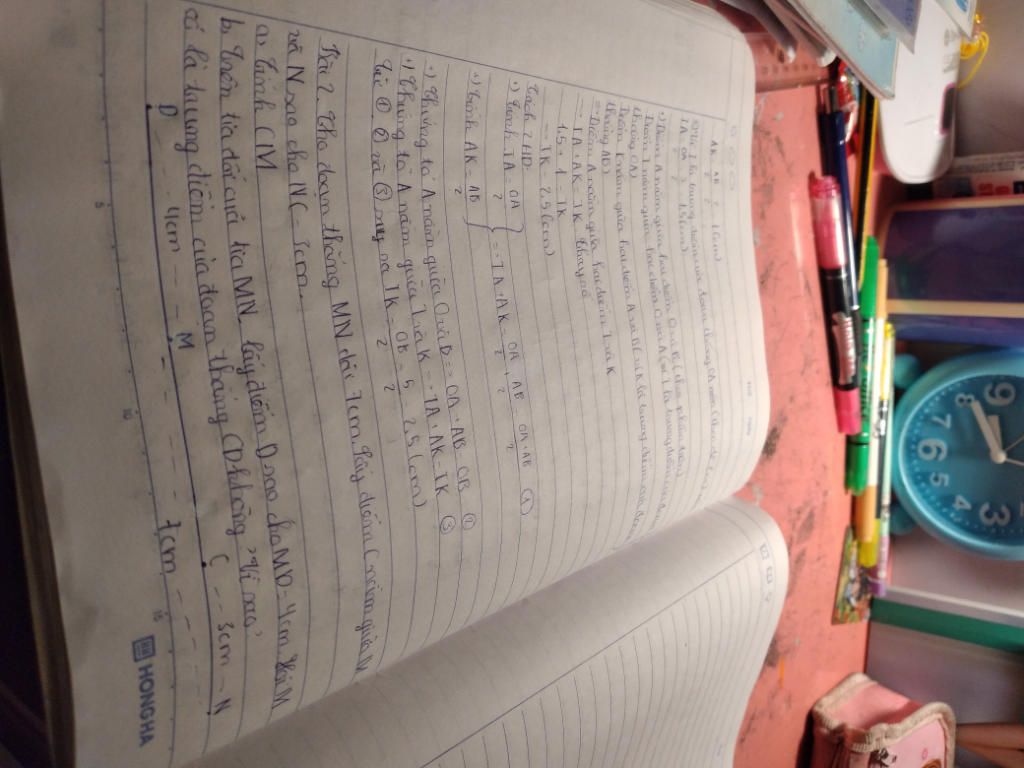 AK = AB/2 = 1 (cm)
+) Vì I là trung điểm của đoạn thẳng OA nên
IA = OA/2 = 1,5 (cm)
+) Điểm A nằm giữa hai điểm O và B
Điểm I nằm giữa hai điểm O và A (vì I là trung điểm của đoạn
thẳng OA)
Điểm K nằm giữa hai điểm A và B (vì K là trung điểm của đoạn
thẳng AB)
=> Điểm A nằm giữa hai điểm I và K
→ IA + AK = IK thay số
1,5 + 1 = IK
→ IK = 2,5 (cm)
Cách 2 HD:
+) Tính IA = OA/2
+) Tính AK = AB/2 } => IA + AK = OA/2 + AB/2 = OA + AB/2 (1)
+) Chứng tỏ A nằm giữa O và B => OA + AB = OB (2)
+) Chứng tỏ A nằm giữa I và K → IA + AK = IK (3)
Từ (1), (2) và (3) suy ra IK = OB/2 = 5/2 = 2,5 (cm)
Bài 2. Cho đoạn thẳng MN dài 7cm. Lấy điểm C nằm giữa M
và N sao cho NC = 3cm.
a) Tính CM
b. Trên tia đối của tia MN lấy điểm D sao cho MD = 4cm. Hỏi M
có là trung điểm của đoạn thẳng CD không, vì sao?
D 4cm M C 3cm N
7cm
5 10 15
HONG HA